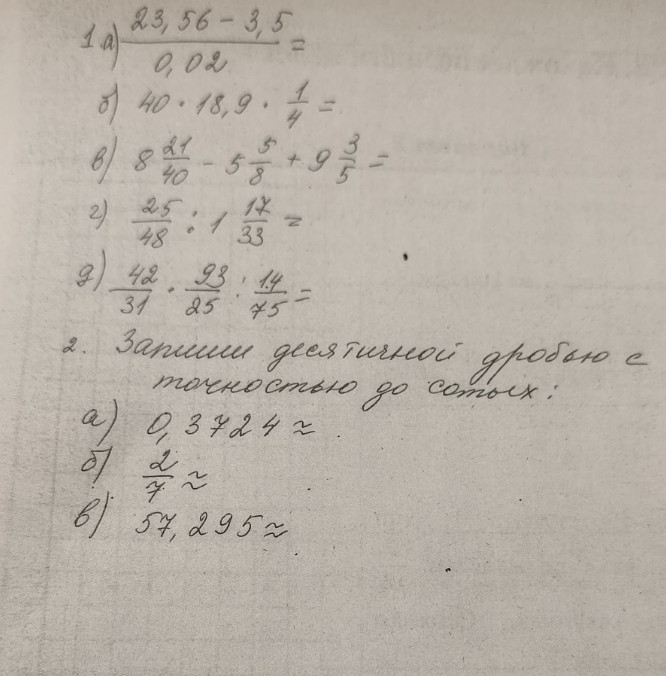 1. а) (23,56 − 3,5)/0,02 =
б) 40 · 18,9 · 1/4 =
в) 8 21/40 − 5 5/8 + 9 3/5 =
г) 25/48 : 1 17/33 =
д) 42/31 · 93/25 : 14/75 =
2. Запиши десятичной дробью с
точностью до сотых:
а) 0,3724 ≈
б) 2/7 ≈
в) 57,295 ≈